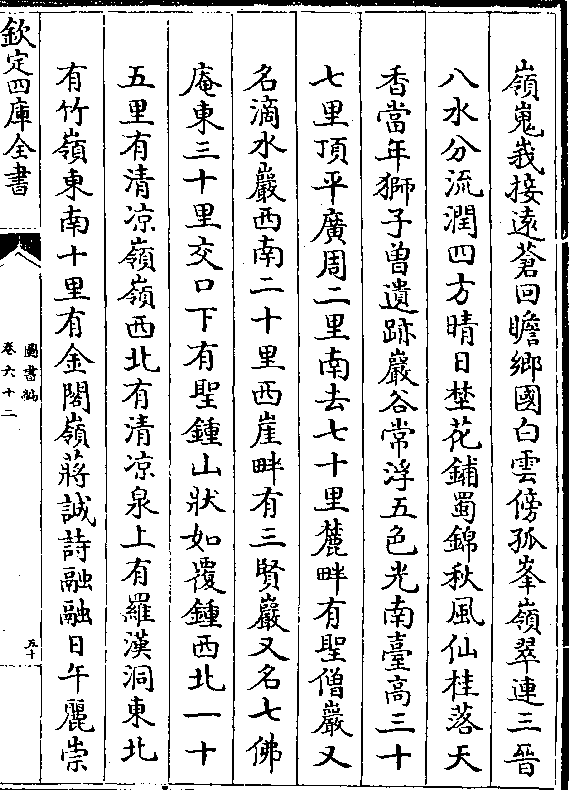 嶺嵬峩接遠蒼回瞻鄉國白雲傍孤峯嶺翠連三晉
八水分流潤四方晴日埜花鋪蜀錦秋風仙桂落天
香當年獅子曾遺跡巖谷常浮五色光南臺高三十
七里頂平廣周二里南去七十里麓畔有聖僧巖又
名滴水巖西南二十里西崖畔有三賢巖又名七佛
庵東三十里交口下有聖鍾山狀如覆鍾西北一十
五里有清凉嶺嶺西北有清凉泉上有羅漢洞東北
有竹嶺東南十里有金閣嶺蔣誠詩融融日午麗崇
欽定四庫全書
圖書編
卷六十二
五十